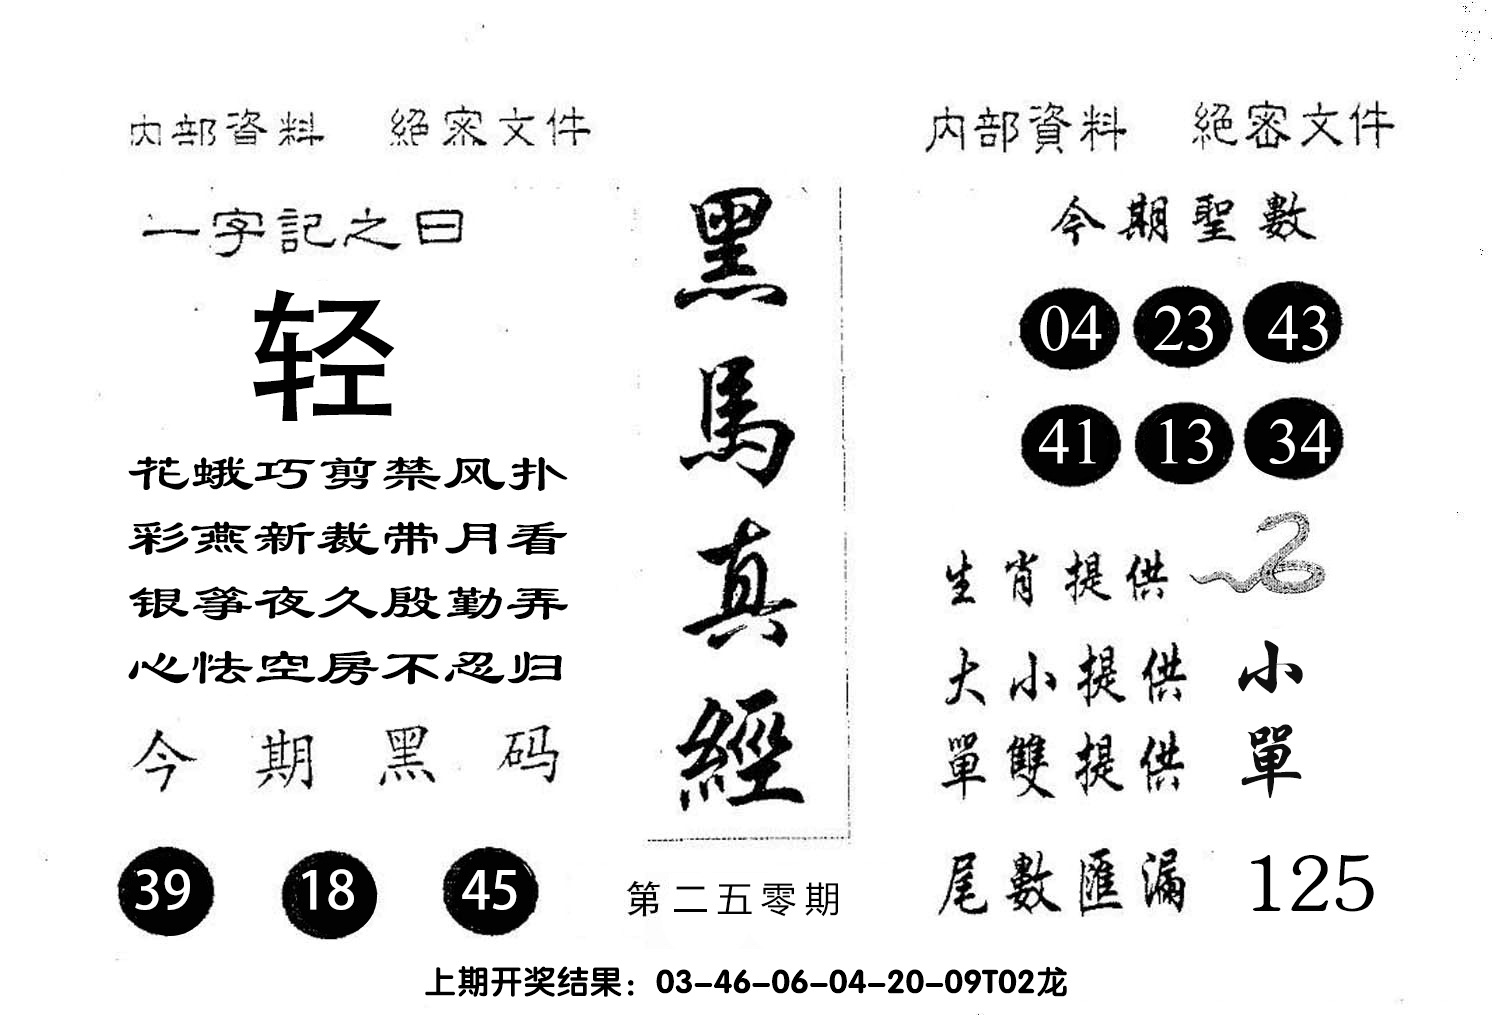 内部資料 絕密文件
一字記之曰
轻
花蛾巧剪禁风扑
彩燕新裁带月看
银筝夜久殷勤弄
心怯空房不忍归
今期黑码
39 18 45
黑馬真經
第二五零期
内部資料 絕密文件
今期聖數
04 23 43
41 13 34
生肖提供
大小提供 小
單雙提供 單
尾數匯漏 125
上期开奖结果：03-46-06-04-20-09T02龙